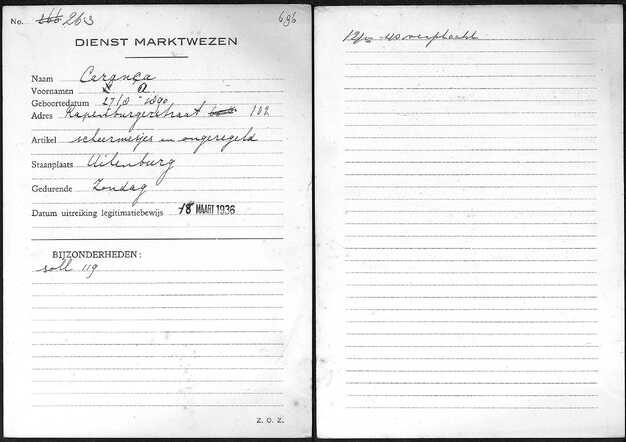 No. 266 263 696
DIENST MARKTWEZEN
Naam Ceranga
Voornamen
Geboortedatum 27/8 - 1890
Adres Rapenburgerstraat 102
Artikel scheermesjes en ongeregeld
Staanplaats Uilenburg
Gedurende Zondag
Datum uitreiking legitimatiebewijs 18 MAART 1936
BIJZONDERHEDEN:
soll 119
Z. O. Z.
-40 verplaatst